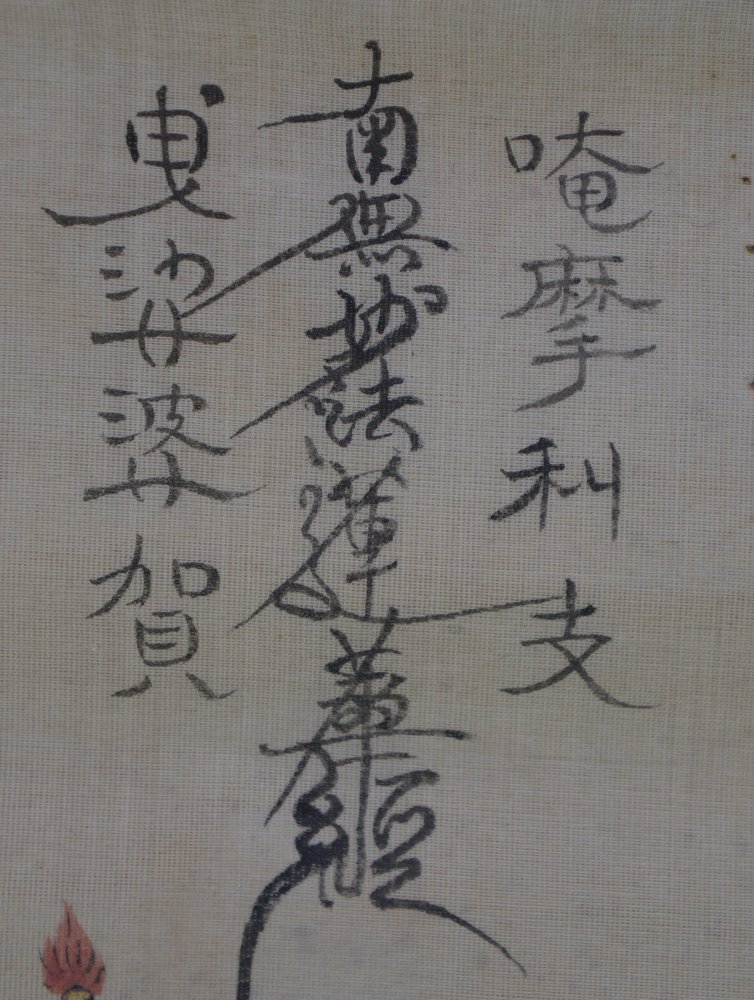 唵摩利支
南無妙法蓮華経
曳娑婆賀